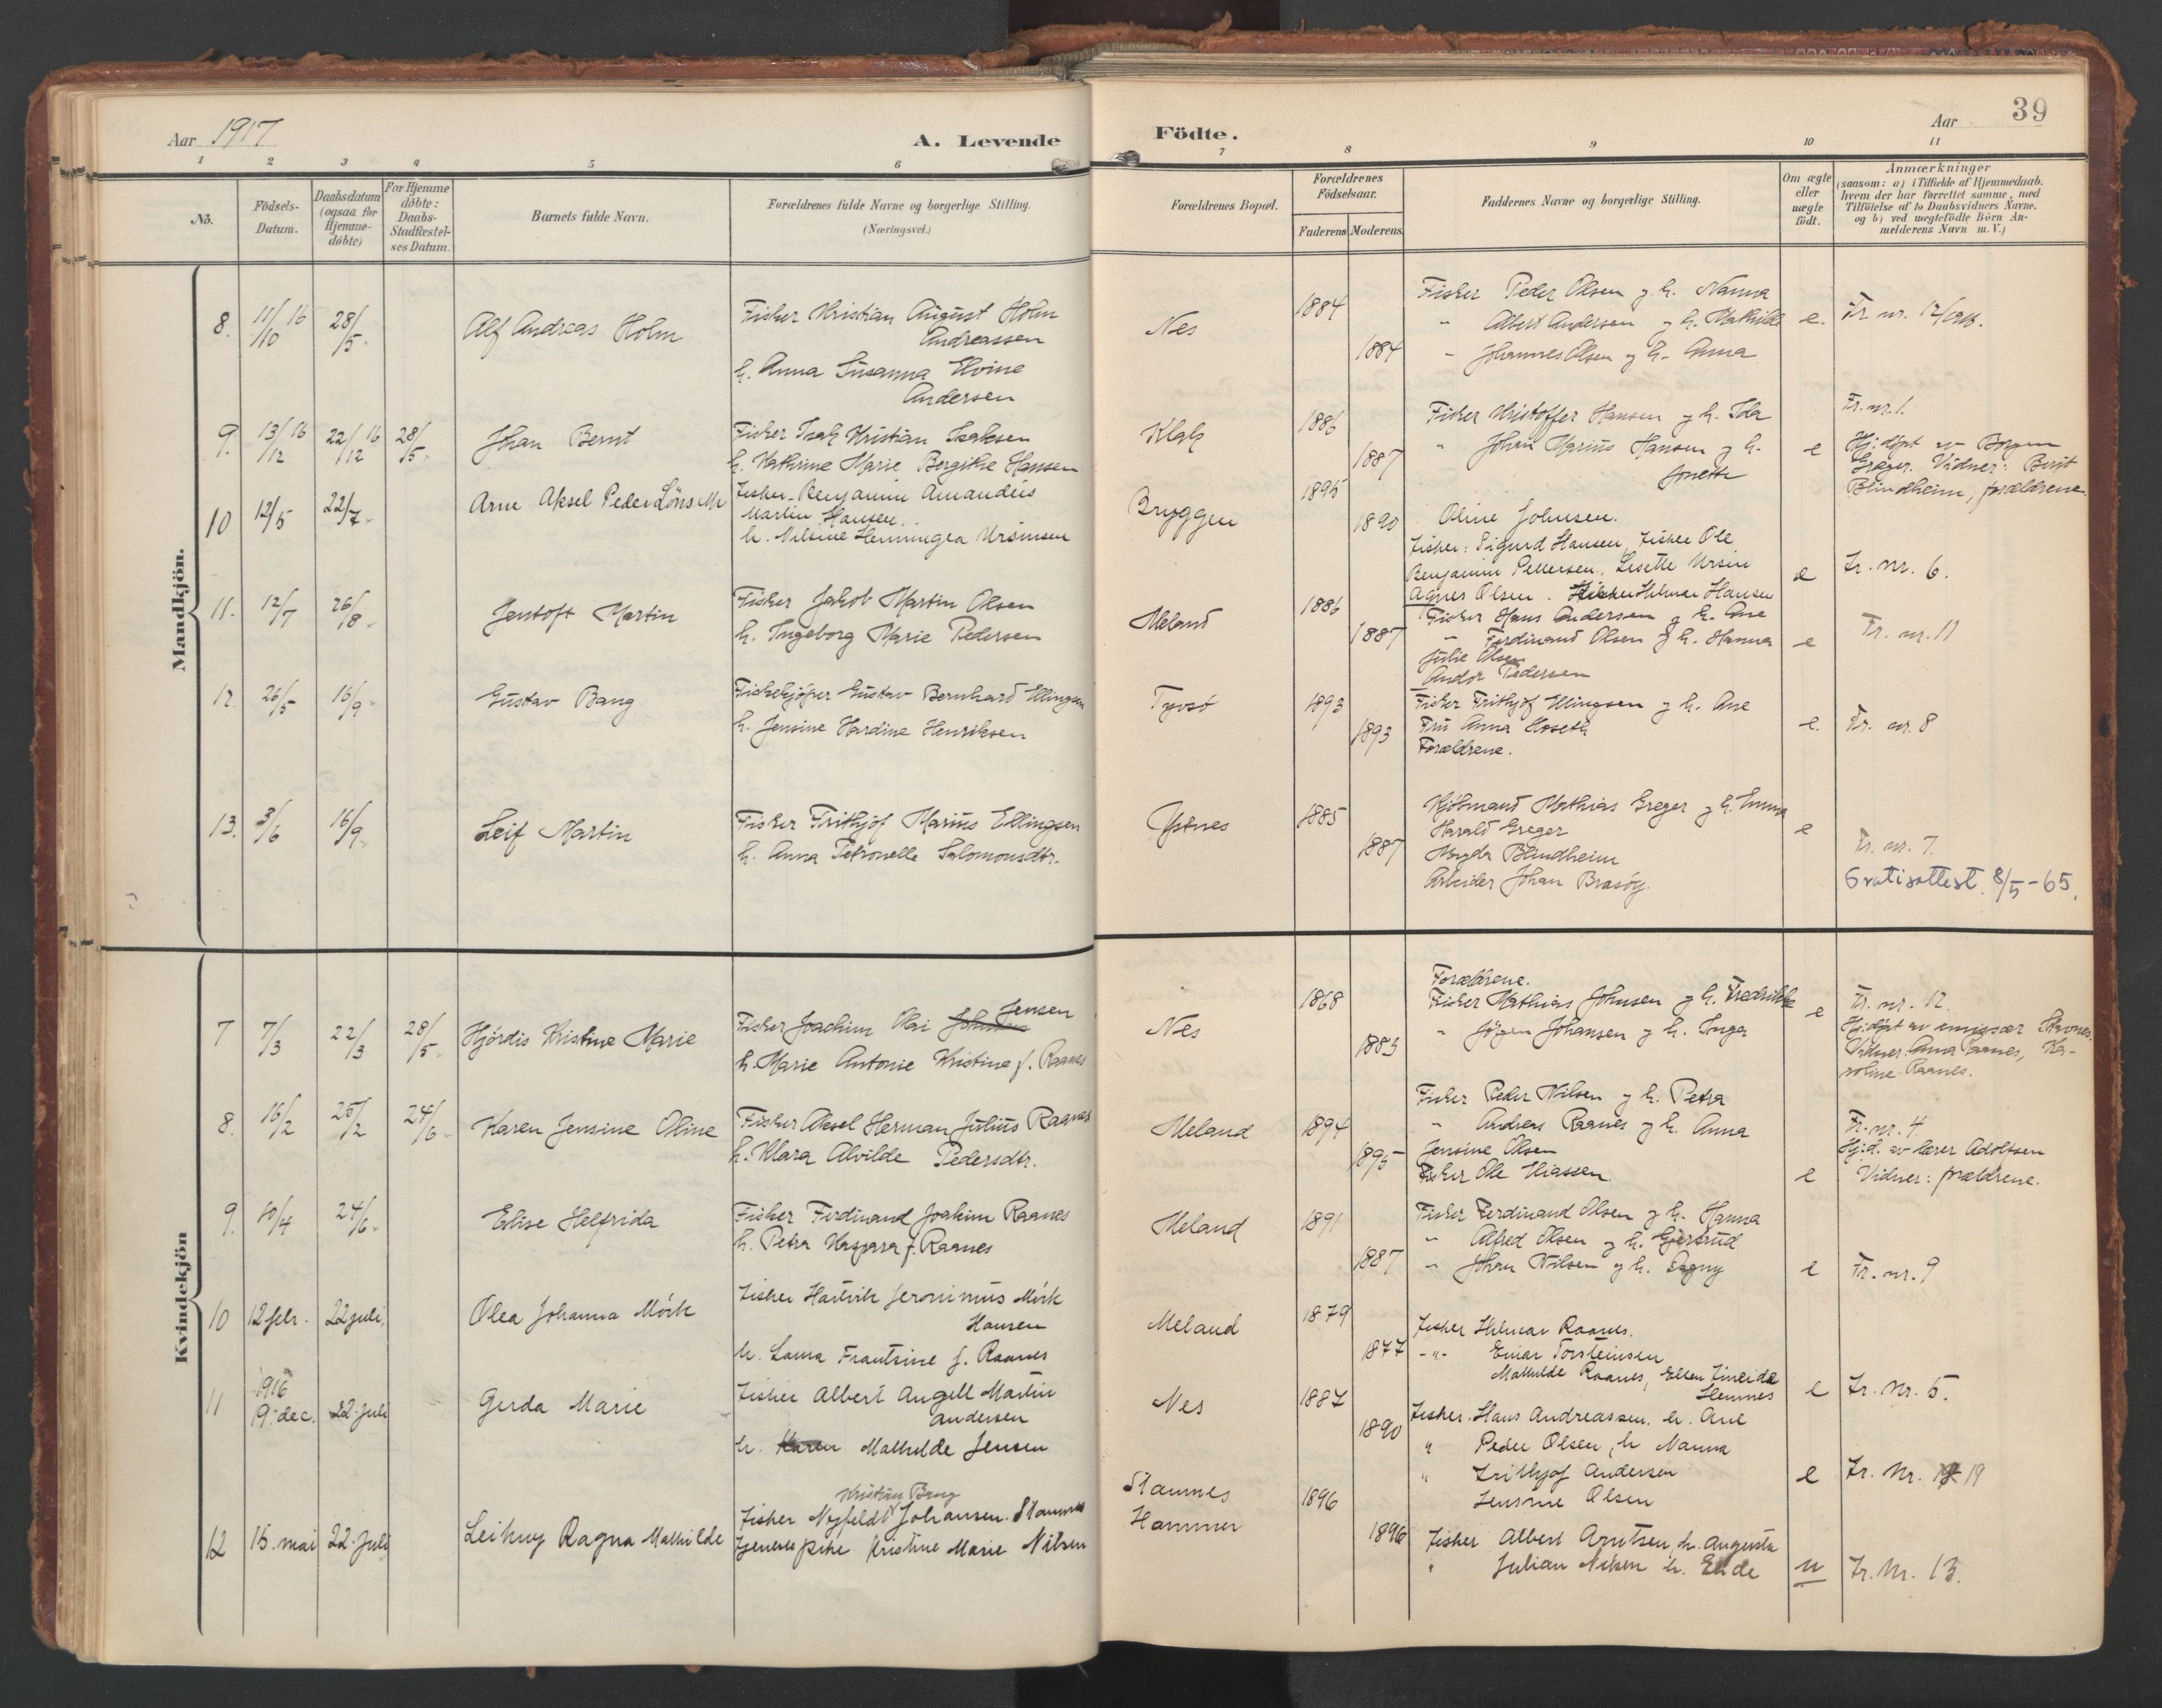 39
Aar 1917
A. Levende
Födte.
Aar
1 2 3 4 5 6 7 8 9 10 11
Nö.
Födsels-
Datum.
Daabsdatum
(ogsaa for
Hjemme-
döbte)
For Hjemme
döbte:
Daabs-
Stadfæstel-
ses Datum.
Barnets fulde Navn.
Forældrenes fulde Navne og borgerlige Stilling.
(Næringsvei.)
Forældrenes Bopæl.
Forældrenes
Födselsaar.
Faderens Moderens
Faddernes Navne og borgerlige Stilling.
Om ægte
eller
uægte
födt.
Anmærkninger
(saasom: a) i Tilfælde af Hjemmedaab.
hvem der har forrettet samme, med
Tilföielse af to Daabsvidners Navne.
og b) ved uægtefödte Börn An-
melderens Navn m.V.)
Mandkjön.
8. 11/10 16 28/5. Alf Andreas Holm
Fisker Kristian August Holm
Andreassen
h. Anna Susanna
Andersen
Nes 1884 1884
Fisker Peder Olsen og h. Nanna
" Albert Andersen og h. Mathilde
" Johannes Olsen og h. Anna
e. Fr nr. 12/1916.
9. 13/12 16 22/12 16 28/5. Johan Bernt
Fisker Isak Kristian Isaksen
h. Kathrine Marie Bergithe Hansen
Klak 1886 1887
Fisker Kristoffer Hansen og h. Ida
" Johan Marius Hansen og h.
Jonette
e
Fr. nr. 1.
Hj:döpt av Borgny
Greger. Vidner: Berit
Blindheim, forældrene.
10 12/5 22/7. Arne Aksel Peder Löns. Mr
Fisker Benjamin Amandus
Martin Hansen.
h. Nilsine Henningea Ursinsen
Bryggen 1895 1890
Oline Johnsen.
Fisker: Sigurd Hansen, Fisker Ole
Benjamin Pettersen. Lisette Ursin
Agnes Olsen. Fisker Hilmar Hansen
e Fr. nr. 6.
11. 12/7 26/8. Jentoft Martin
Fisker Jakob Martin Olsen
h. Ingeborg Marie Pedersen
Meland 1886 1887
Fisker Hans Andersen og h. Ane
" Ferdinand Olsen og h. Hanna
Julie Olsen
Andor Pedersen
e Fr. nr. 11
12. 26/5 16/9. Gustav Bang
Fiskekjöper Gustav Bernhard Ellingsen
h. Jensine Hardine Henriksen
Tyvsö 1893 1893
Fisker Frithjof Ellingsen og h. Ane
Fru Anna Hoseth
Forældrene.
e. Fr. nr. 8
13. 3/6 16/9. Leif Martin
Fisker Frithjof Marius Ellingsen
h. Anna Petronelle Salomonsdtr.
Ystnes 1885 1887
Kjöbmand Mathias Greger og h. Emma
Harald Greger
Magda Blindheim
Arbeider Johan Brasöy.
e
Fr. nr. 7.
Gratisattest 8/5-65.
Kvindekjön
7 7/3 22/3 28/5. Hjördis Kristine Marie
Jensen
Fisker Joachim Olai Johnsen
h. Marie Antonie Kristine f. Raanes
Nes 1868 1883
Forældrene.
Fisker Mathias Johnsen og h. Fredrikke
" Jörgen Johansen og h. Inga
e
Fr. nr. 12.
Hj:döpt av emissær Stavnes.
Vidner: Anna Raanes, Ka-
roline Raanes.
8. 16/2 25/2 24/6. Karen Jensine Oline
Fisker Aksel Herman Julius Raanes
h. Klara Alvilde Pedersdtr.
Meland 1894 1895
Fisker Peder Nilsen og h. Petra
" Andreas Raanes og h. Anna
Jensine Olsen
Fisker Ole Eliassen.
e
Fr. nr. 4.
Hj:d. av lærer Adolfsen
Vidner: forældrene.
9. 10/4 24/6. Elise Helfrida
Fisker Ferdinand Joakim Raanes
h. Petra Kaspara f. Raanes
Meland 1891 1887
Fisker Ferdinand Olsen og h. Hanna
" Alfred Olsen og h. Gjertrud
" Johan Nilsen og h. Dagny
e Fr. nr. 9
10 12 febr. 22 juli. Olea Johanna Mörk
Fisker Hartvik Jeronimus Mörk
Hansen
h. Laura Frantsine f. Raanes
Meland 1879 1877
Fisker Hilmar Raanes.
-"- Einar Torsteinsen
Mathilde Raanes, Ellen Zineida
Hemnes
e Fr. nr. 5.
11 1916
19. dec. 22. juli Gerda Marie
Fisker Albert Angell Martin
Andersen
h. Karen Mathilde Jensen
Nes 1887 1890
Fisker Hans Andreassen. h. Ane
" Peder Olsen, h Nanna
" Frithjof Andersen
Jensine Olsen
e Fr. nr. 19
12 15. mai 22. juli Leikny Ragna Mathilde
Kristian Bang
Fisker Nyfeldt Johansen. Stamnes
Tjenestepike Kristine Marie Nilsen
Stamnes
Hammer
1896 1896
Fisker Albert Arntsen, h. Augusta
" Julian Nilsen h. Elide
u Fr. nr. 13.